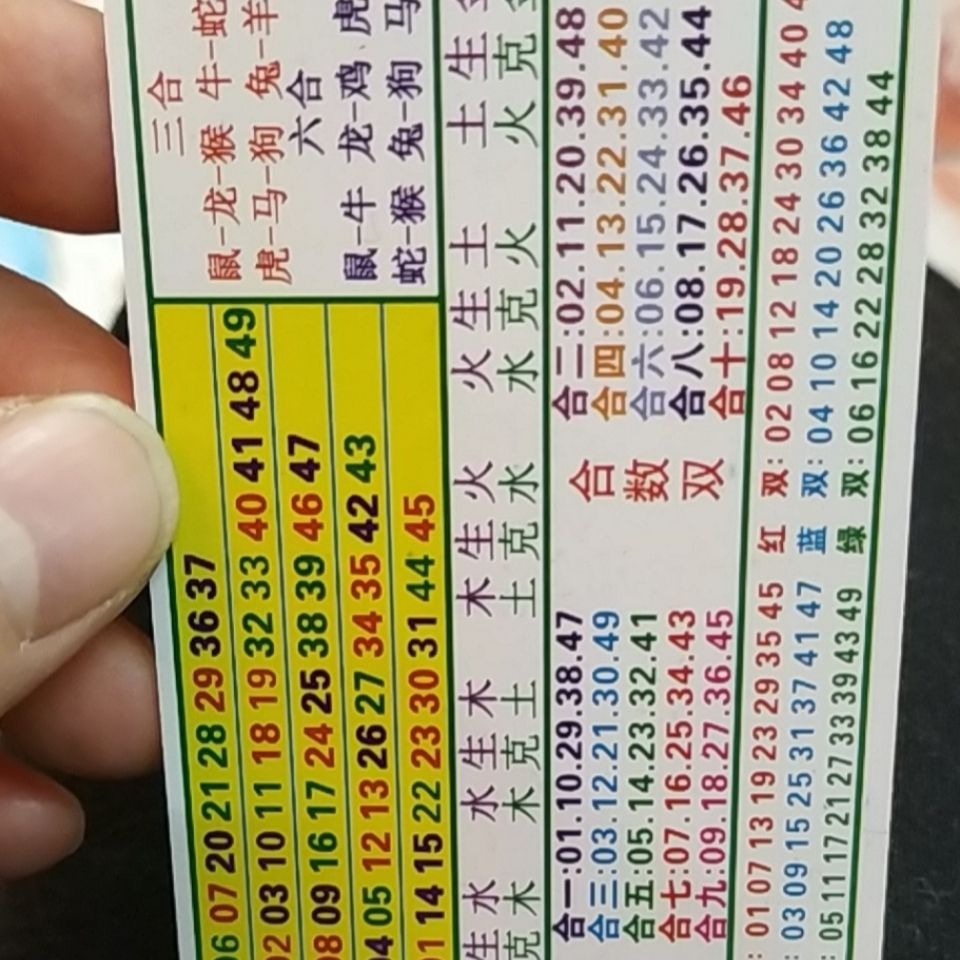 三合
鼠-龙-猴 牛-蛇
虎-马-狗 兔-羊
六合
鼠-牛 龙-鸡 虎
蛇-猴 兔-狗 马
06 07 20 21 28 29 36 37
02 03 10 11 18 19 32 33 40 41 48 49
08 09 16 17 24 25 38 39 46 47
04 05 12 13 26 27 34 35 42 43
01 14 15 22 23 30 31 44 45
生水 水生木 木生火 火生土 土生
克木 木克土 土克水 水克火 火克
合数双
合一:01.10.29.38.47
合三:03.12.21.30.49
合五:05.14.23.32.41
合七:07.16.25.34.43
合九:09.18.27.36.45
合二:02.11.20.39.48
合四:04.13.22.31.40
合六:06.15.24.33.42
合八:08.17.26.35.44
合十:19.28.37.46
: 01 07 13 19 23 29 35 45 红双: 02 08 12 18 24 30 34 40
: 03 09 15 25 31 37 41 47 蓝双: 04 10 14 20 26 36 42 48
: 05 11 17 21 27 33 39 43 49 绿双: 06 16 22 28 32 38 44